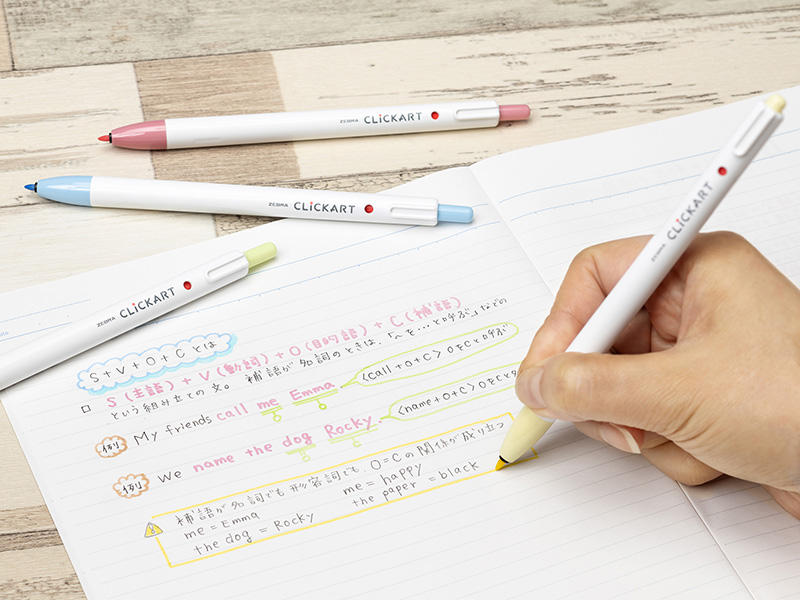 ZEBRA CLiCKART
ZEBRA CLiCKART
ZEBRA CLiCKART
ZEBRA CLiCKART
S+V+O+Cとは
□ S(主語)+V(動詞)+O(目的語)+C(補語)
という組み立ての文。補語が名詞のときは、「〜を…と呼ぶ」などの
例 My friends call me Emma. <call+O+C> OをCと呼ぶ
例 We name the dog Rocky. <name+O+C> OをCと
補語が名詞でも形容詞でも、O=Cの関係が成り立つ
me = Emma me = happy
the dog = Rocky the paper = black